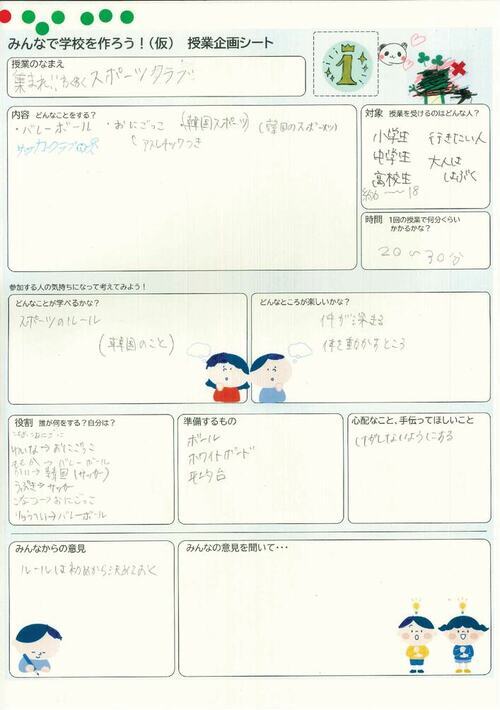 みんなで学校を作ろう！(仮) 授業企画シート
授業のなまえ
集まれ!! スポーツクラブ
1
内容 どんなことをする？
・バレーボール ・おにごっこ (韓国スポーツ)
アスレチックつき
サッカークラブ
対象 授業を受けるのはどんな人？
小学生 行きたい人
中学生 大人は
高校生
約6〜18
時間 1回の授業で何分くらいかかるかな？
20〜30分
参加する人の気持ちになって考えてみよう！
どんなことが学べるかな？
スポーツのルール
(韓国のこと)
どんなところが楽しいかな？
仲が深まる
体を動かすところ
役割 誰が何をする？自分は？
→おにごっこ
→バレーボール
→韓国(サッカー)
→サッカー
こなつ→おにごっこ
→バレーボール
準備するもの
ボール
ホワイトボード
平均台
心配なこと、手伝ってほしいこと
けがしないようにする
みんなからの意見
ルールは初めから決めておく
みんなの意見を聞いて・・・